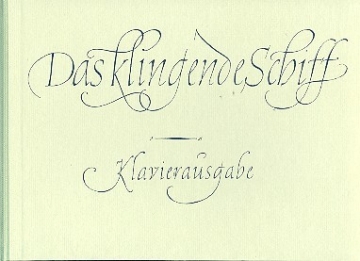 Das klingende Schiff
Klavierausgabe